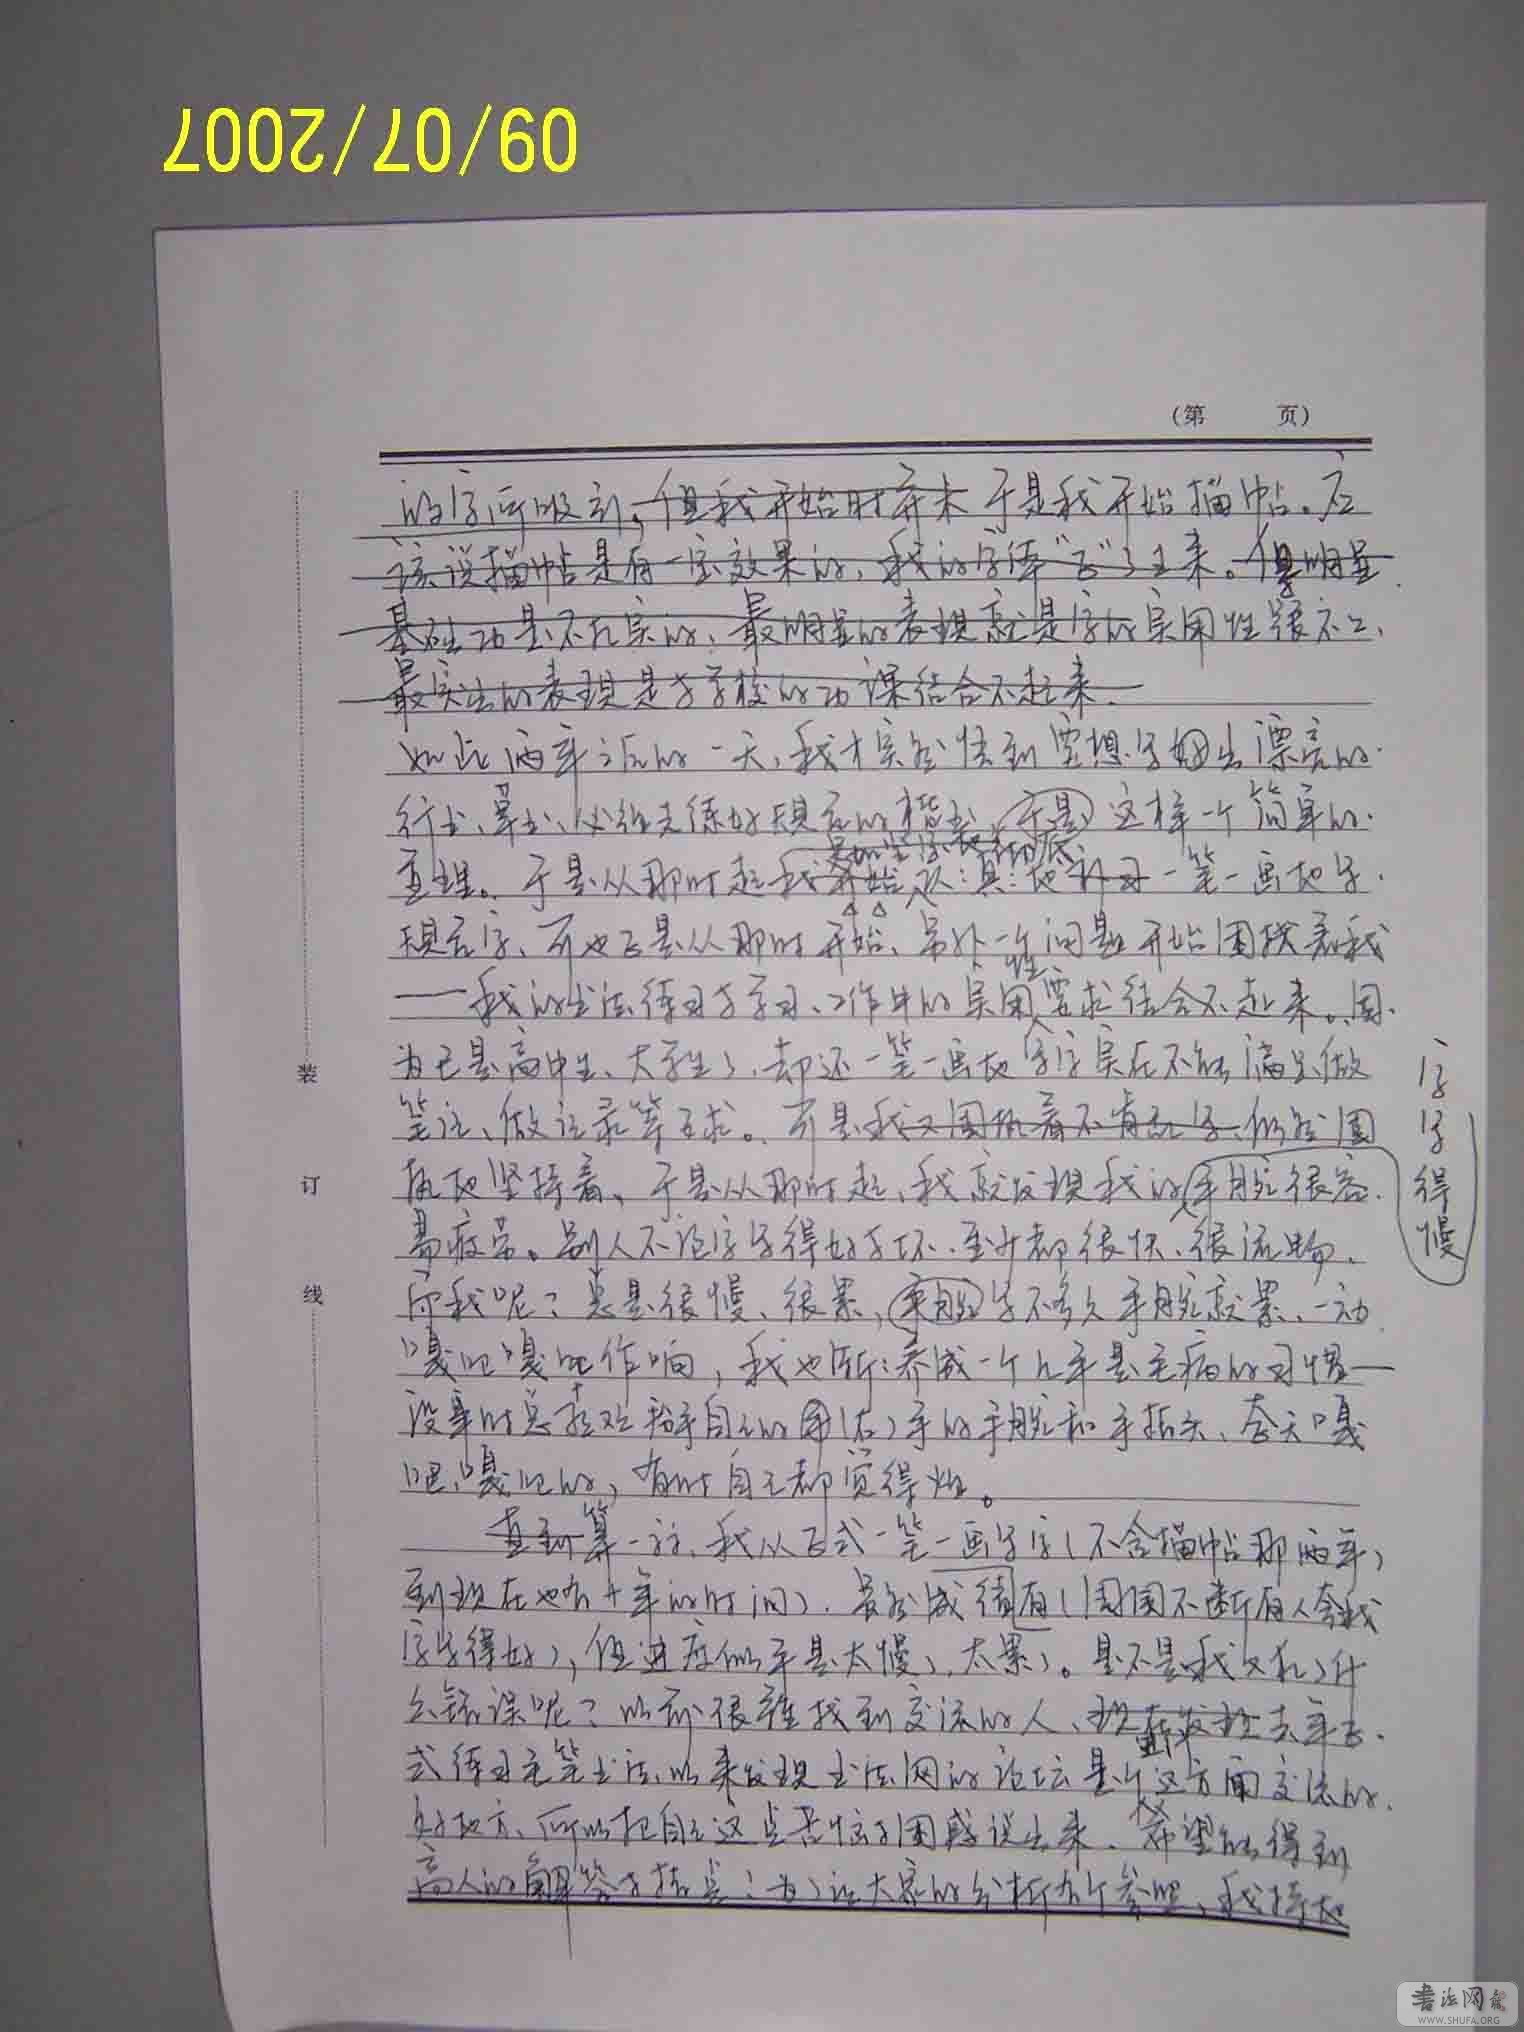 09/07/2007
（第 页）
的字所吸引。但我开始时并未于是我开始描帖。应
该说描帖是有一定效果的，我的字体“飞”了上来。但明显
基础功是不扎实的、最明显的表现就是字的实用性很不足、
最突出的表现是与学校的功课结合不起来.
如此两年之后的一天，我才突然悟到要想写出漂亮的
行书、草书、必须先练好规言的楷书，于是这样一个简单的
真理。于是从那时起我开始认真地补习一笔一画地写
规言字、可也正是从那时开始、另外一个问题开始困扰着我
——我的书法练习与学习、工作中的实用性要求结合不起来。因
为已是高中生、大学生了，却还一笔一画地写字实在不能满足做
笔记、做记录等要求。可是我又固执着不肯乱写、仍然固
执地坚持着、于是从那时起、我就发现我的字写得慢手腕很容
易疲劳。别人不论字写得好与坏、至少都很快、很流畅、
而我呢？总是很慢、很累，手腕写不多久手腕就累、一动
嘎吧嘎吧作响，我也渐渐养成一个几乎是毛病的习惯—
没事时总喜欢掰自己的（右）手的手腕和手指头、整天嘎
吧、嘎吧的，有时自己都觉得烦。
直到算一算、我从正式一笔一画写字（不含描帖那两年）
到现在也有十年的时间）。虽然成绩有（周围不断有人夸我
字写得好），但进度似乎是太慢了、太累了。是不是我又犯了什
么错误呢？以前很难找到交流的人、现在发现去年正
式练习毛笔书法以来发现书法网的论坛是个这方面交流的
好地方、所以把自己这点苦恼与困惑说出来、希望能得到
高人的解答与指点！为了让大家的分析有个参照、我特地
字写得慢
装
订
线
书法网
WWW.SHUFA.ORG